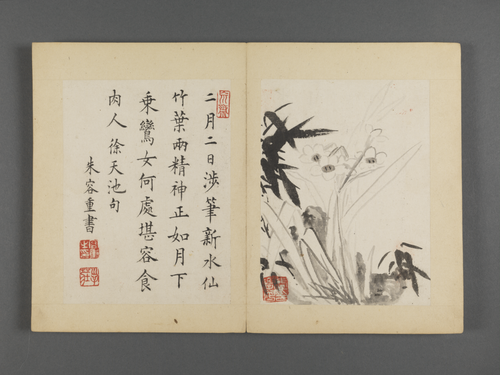 二月二日涉筆新水仙
竹葉兩精神正如月下
乘鸞女何處堪容食
肉人徐天池句
朱容重書